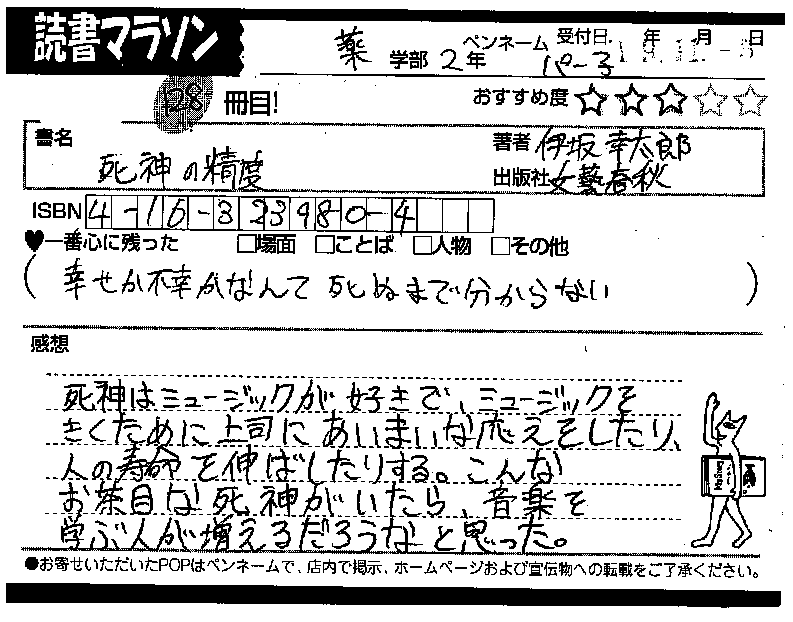 読書マラソン
薬 学部 2年 ペンネーム パー子 受付日 年 月 日
128 冊目! おすすめ度 ★★★☆☆
書名 死神の精度
著者 伊坂 幸太郎
出版社 文藝春秋
ISBN 4-16-323980-4
♥一番心に残った □場面 □ことば □人物 □その他
(幸せか不幸かなんて死ぬまで分からない)
感想
死神はミュージックが好きで、ミュージックを
きくために上司にあいまいな応えをしたり、
人の寿命を伸ばしたりする。こんな
お茶目な死神がいたら、音楽を
学ぶ人が増えるだろうなと思った。
●お寄せいただいたPOPはペンネームで、店内で掲示、ホームページおよび宣伝物への転載をご了承ください。